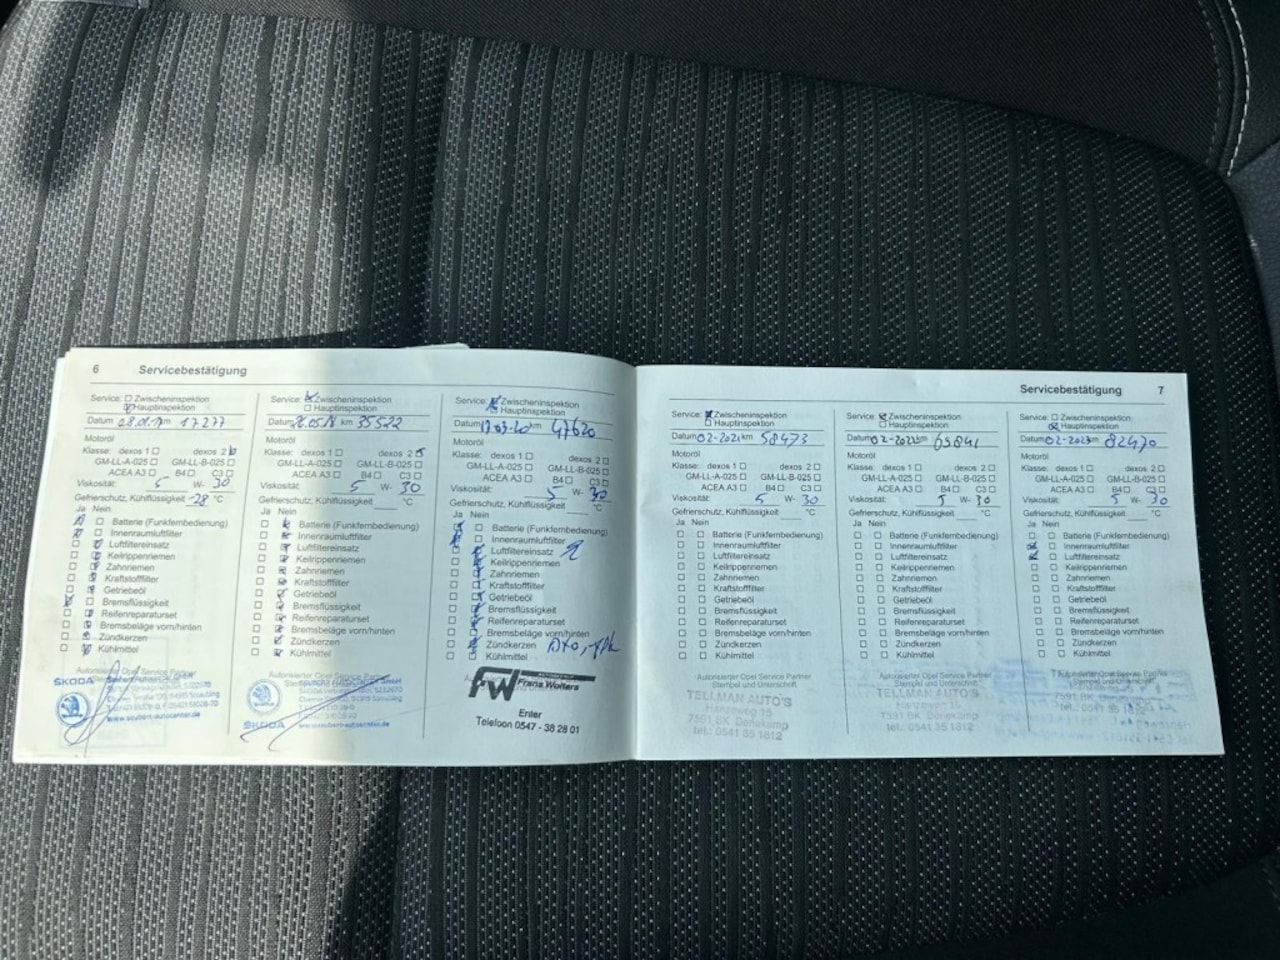 6 Servicebestätigung
Service: Zwischeninspektion
Hauptinspektion
Datum km 17277
Motoröl
Klasse: dexos 1 dexos 2
GM-LL-A-025 GM-LL-B-025
ACEA A3 B4 C3
Viskosität: 5 W- 30
Gefrierschutz, Kühlflüssigkeit -28 °C
Ja Nein
Batterie (Funkfernbedienung)
Innenraumluftfilter
Luftfiltereinsatz
Keilrippenriemen
Zahnriemen
Kraftstofffilter
Getriebeöl
Bremsflüssigkeit
Reifenreparaturset
Bremsbeläge vorn/hinten
Zündkerzen
Kühlmittel
Autorisierter Opel Service Partner
ŠKODA
Service: Zwischeninspektion
Hauptinspektion
Datum km 35522
Motoröl
Klasse: dexos 1 dexos 2
GM-LL-A-025 GM-LL-B-025
ACEA A3 B4 C3
Viskosität: 5 W- 30
Gefrierschutz, Kühlflüssigkeit °C
Ja Nein
Batterie (Funkfernbedienung)
Innenraumluftfilter
Luftfiltereinsatz
Keilrippenriemen
Zahnriemen
Kraftstofffilter
Getriebeöl
Bremsflüssigkeit
Reifenreparaturset
Bremsbeläge vorn/hinten
Zündkerzen
Kühlmittel
ŠKODA
Service: Zwischeninspektion
Hauptinspektion
Datum 17-03-20 km 47620
Motoröl
Klasse: dexos 1 dexos 2
GM-LL-A-025 GM-LL-B-025
ACEA A3 B4 C3
Viskosität: 5 W- 30
Gefrierschutz, Kühlflüssigkeit °C
Ja Nein
Batterie (Funkfernbedienung)
Innenraumluftfilter
Luftfiltereinsatz
Keilrippenriemen
Zahnriemen
Kraftstofffilter
Getriebeöl
Bremsflüssigkeit
Reifenreparaturset
Bremsbeläge vorn/hinten
Zündkerzen
Kühlmittel
FW Frans Wolters
Enter
Telefoon 0547 - 38 28 01
Servicebestätigung 7
Service: Zwischeninspektion
Hauptinspektion
Datum 02-2021 km 58473
Motoröl
Klasse: dexos 1 dexos 2
GM-LL-A-025 GM-LL-B-025
ACEA A3 B4 C3
Viskosität: 5 W- 30
Gefrierschutz, Kühlflüssigkeit °C
Ja Nein
Batterie (Funkfernbedienung)
Innenraumluftfilter
Luftfiltereinsatz
Keilrippenriemen
Zahnriemen
Kraftstofffilter
Getriebeöl
Bremsflüssigkeit
Reifenreparaturset
Bremsbeläge vorn/hinten
Zündkerzen
Kühlmittel
Autorisierter Opel Service Partner
Stempel und Unterschrift
TELLMAN AUTO'S
Hanzeweg 15
7591 BK Denekamp
tel.: 0541 35 1812
Service: Zwischeninspektion
Hauptinspektion
Datum 02-2022 km 65841
Motoröl
Klasse: dexos 1 dexos 2
GM-LL-A-025 GM-LL-B-025
ACEA A3 B4 C3
Viskosität: 5 W- 30
Gefrierschutz, Kühlflüssigkeit °C
Ja Nein
Batterie (Funkfernbedienung)
Innenraumluftfilter
Luftfiltereinsatz
Keilrippenriemen
Zahnriemen
Kraftstofffilter
Getriebeöl
Bremsflüssigkeit
Reifenreparaturset
Bremsbeläge vorn/hinten
Zündkerzen
Kühlmittel
Autorisierter Opel Service Partner
Stempel und Unterschrift
TELLMAN AUTO'S
Hanzeweg 15
7591 BK Denekamp
tel.: 0541 35 1812
Service: Zwischeninspektion
Hauptinspektion
Datum 02-2023 km 82470
Motoröl
Klasse: dexos 1 dexos 2
GM-LL-A-025 GM-LL-B-025
ACEA A3 B4 C3
Viskosität: 5 W- 30
Gefrierschutz, Kühlflüssigkeit °C
Ja Nein
Batterie (Funkfernbedienung)
Innenraumluftfilter
Luftfiltereinsatz
Keilrippenriemen
Zahnriemen
Kraftstofffilter
Getriebeöl
Bremsflüssigkeit
Reifenreparaturset
Bremsbeläge vorn/hinten
Zündkerzen
Kühlmittel